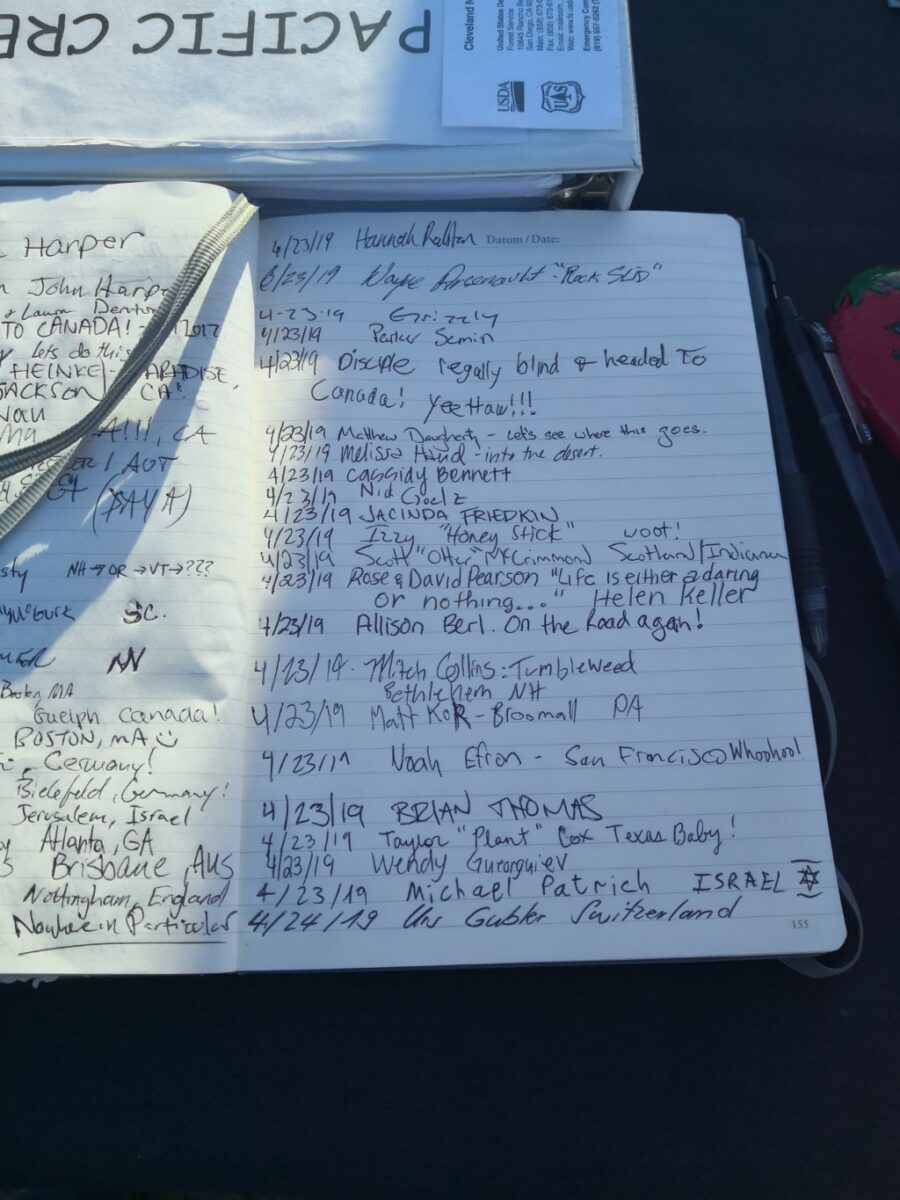 PACIFIC CRE
Cleveland N
United States De
Forest Service
San Diego, CA
USDA
UAS
Harper
John Harp
& Laura Denton
TO CANADA! 2017
Lets do this
HEINKEL PARADISE,
JACKSON CA!
A!!!, CA
/ AUT
(PAYA)
sty NH→OR→VT→???
"Mc"Gurk SC.
Boston MA
Guelph Canada!
BOSTON, MA
Germany!
Bielefeld, Germany!
Jerusalem, Israel
Atlanta, GA
Brisbane, AUS
Nottingham, England
Nowhere in Particular
4/23/19 Hannah Ralston Datum / Date:
4/23/19 Wayne Arsenault - "Rock Slid"
4-23-19 Grizzly
4/23/19 Parker Semin
4/23/19 Disciple legally blind & headed To
Canada! yeeHaw!!!
4/23/19 Matthew Daugherty - Let's see where this goes.
4/23/19 Melissa Hand - into the desert.
4/23/19 Cassidy Bennett
4/23/19 Nic Goelz
4/23/19 JACINDA FRIEDKIN
4/23/19 Izzy "Honey Stick" woot!
4/23/19 Scott "Otter" McCrimmond Scotland/Indiana
4/23/19 Rose & David Pearson "Life is either a daring
or nothing..." Helen Keller
4/23/19 Allison Berl. On the Road again!
4/23/19 - Mitch Collins: Tumbleweed
Bethlehem NH
4/23/19 Matt KOR - Broomall PA
4/23/19 Noah Efron - San Francisco Whoohoo!
4/23/19 BRIAN THOMAS
4/23/19 Taylor "Plant" Cox Texas Baby!
4/23/19 Wendy
4/23/19 Michael Patrich ISRAEL
4/24/19 Urs Gubler Switzerland
155